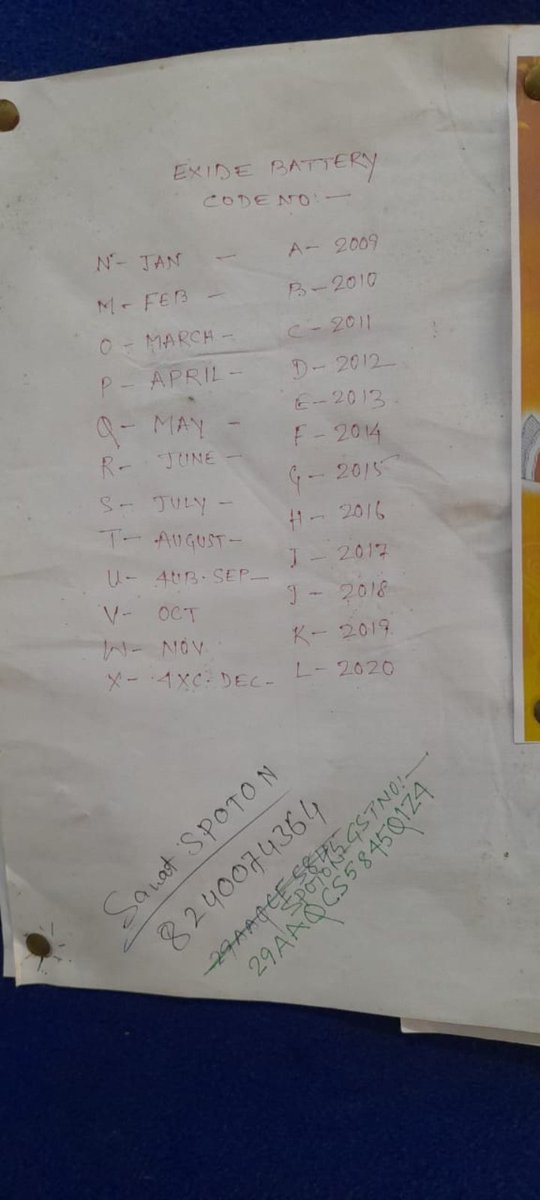 EXIDE BATTERY
CODE NO:—
N - JAN — A - 2009
M - FEB — B - 2010
O - MARCH — C - 2011
P - APRIL — D - 2012
Q - MAY — E - 2013
R - JUNE — F - 2014
S - JULY — G - 2015
T - AUGUST — H - 2016
U - 4UB-SEP — I - 2017
V - OCT J - 2018
W - NOV K - 2019
X - 4XC-DEC - L - 2020
SPOTON
8240074364
SPOTON GST NO:—
29AAQCS5845Q1ZA